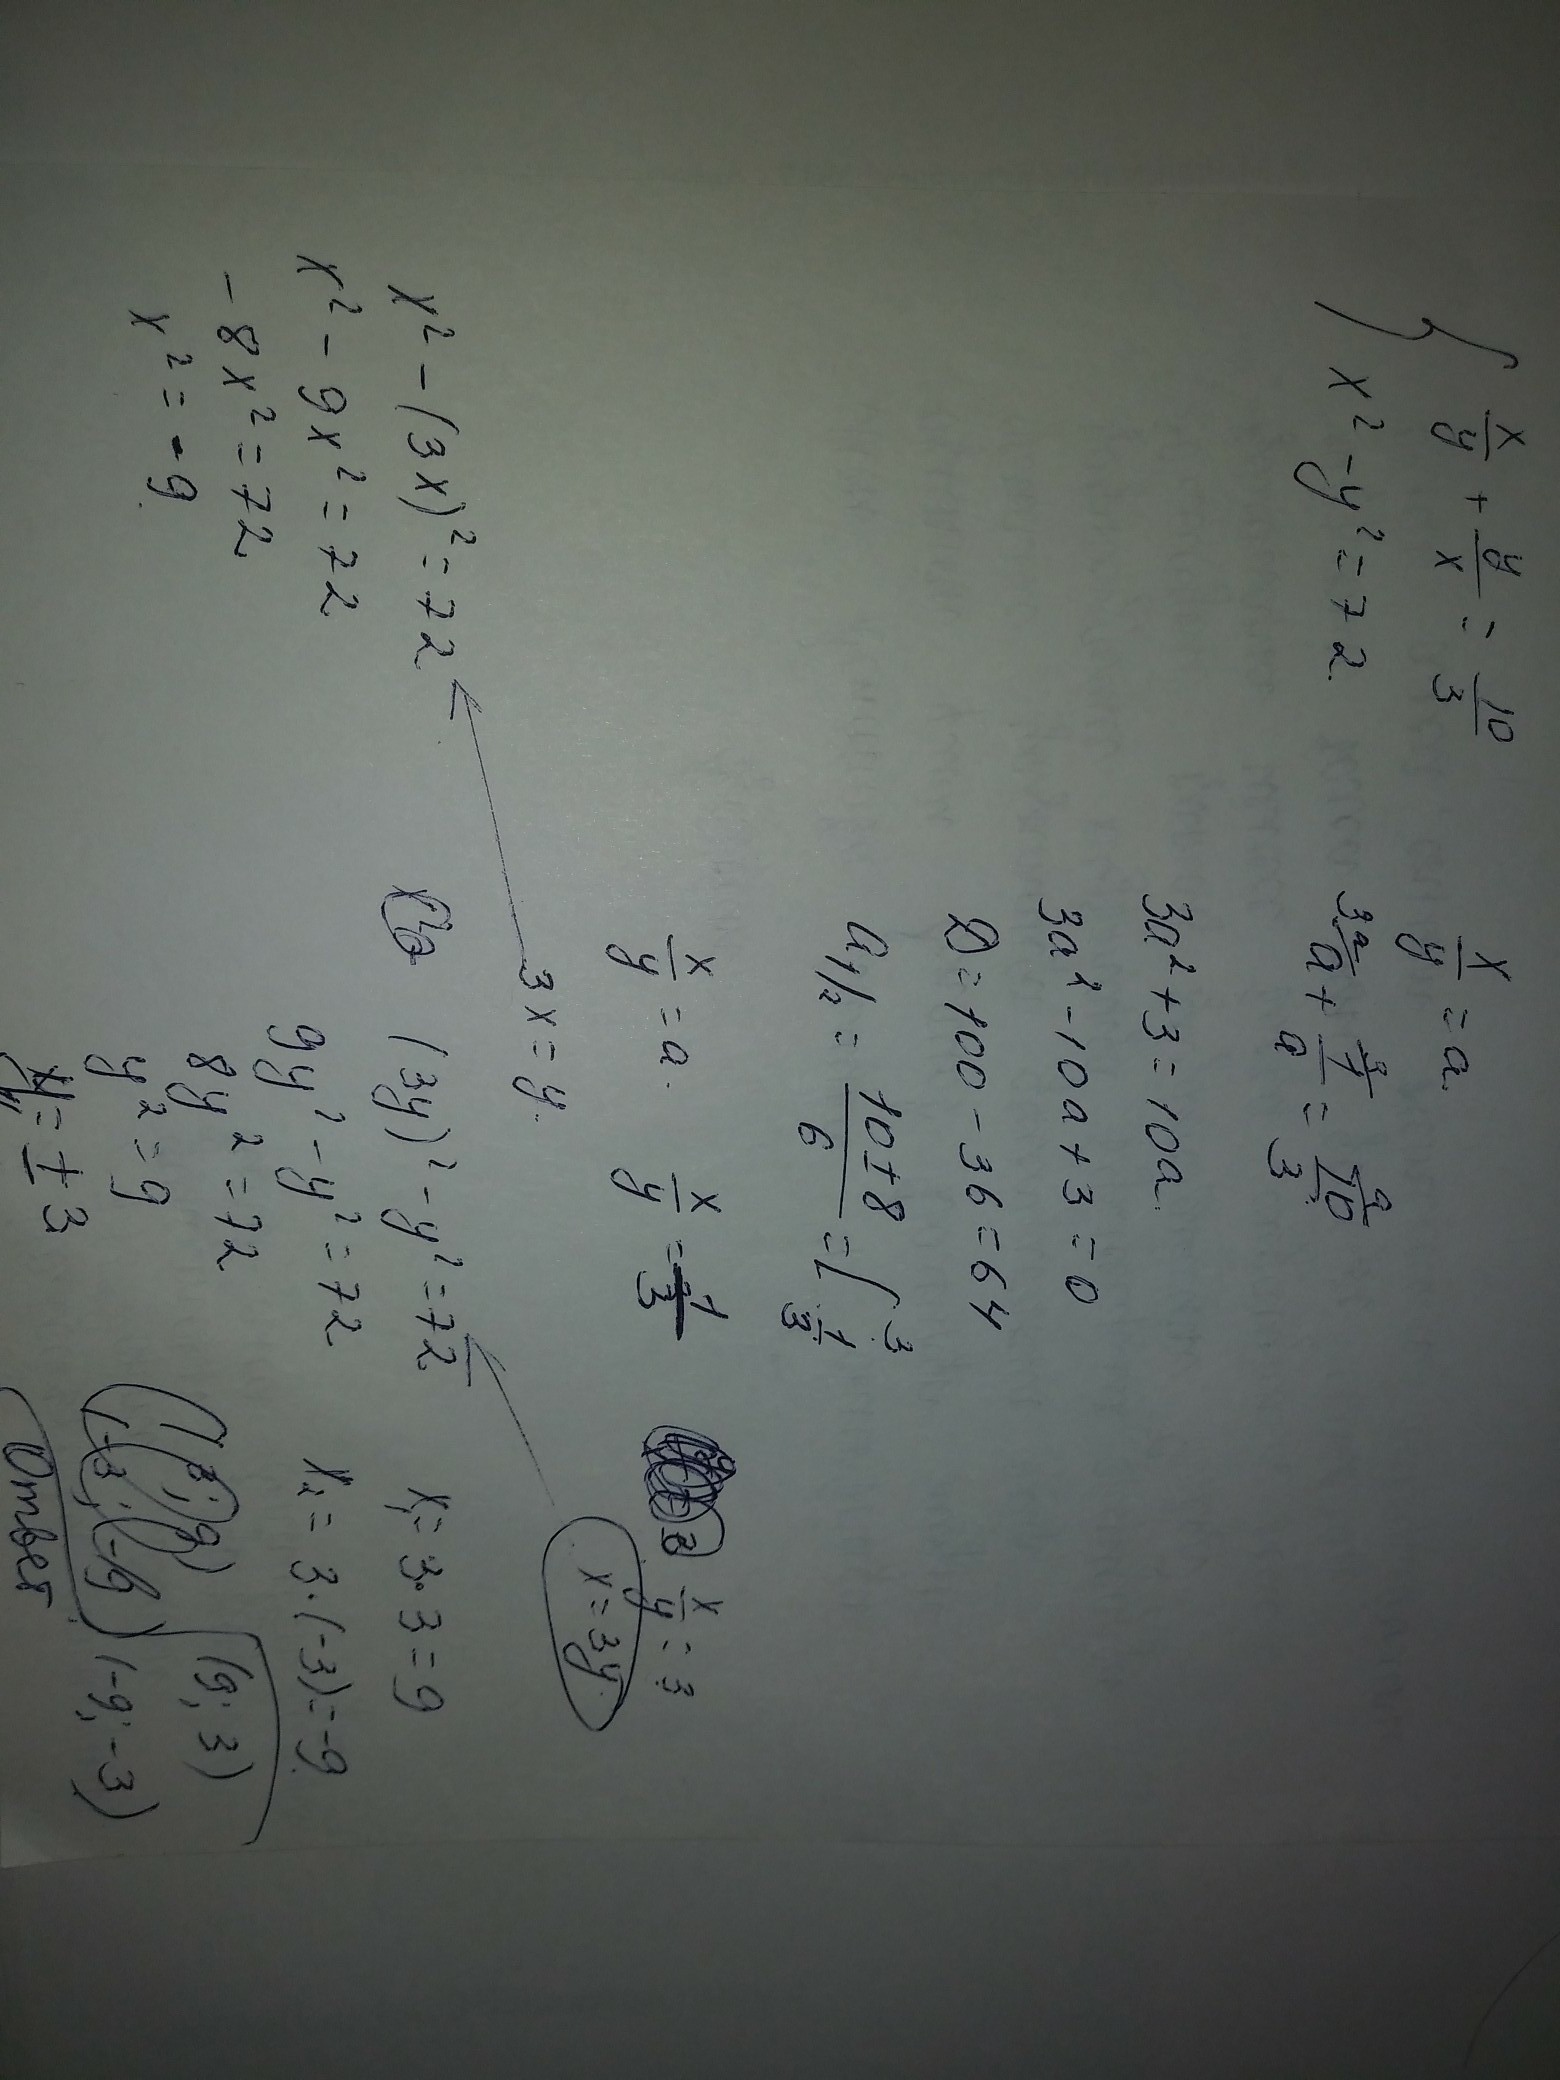 { x/y + y/x = 10/3
x² - y² = 72
x/y = a
³ᵃ⁄a + ³⁄1/a = ᵃ⁄10/3
3a² + 3 = 10a
3a² - 10a + 3 = 0
D = 100 - 36 = 64
a₁/₂ = (10 ± 8)/6 = [ 3
1/3
x/y = a. x/y = 1/3 x/y = 3
3x = y. x = 3y
x² - (3x)² = 72
x² - 9x² = 72
-8x² = 72
x² = -9
(3y)² - y² = 72
9y² - y² = 72
8y² = 72
y² = 9
y = ±3
x₁ = 3·3 = 9
x₂ = 3·(-3) = -9
(3; 9) (9; 3)
(-3; -9) (-9; -3)
Ответ